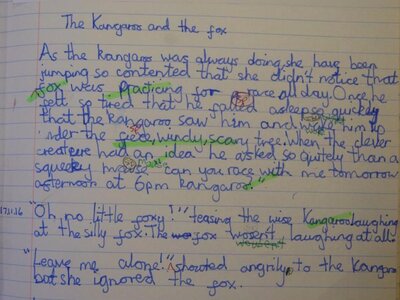 The Kangaroo and the fox
As the kangaroo was always doing, she have been
jumping so contented that she didn't notice that
fox was. Practicing for a race all day. Once he
felt so tired that he falled asleep so quickly
that the kangaroo saw him and him up
under the windy, scary tree. When the clever
creature had an idea he asked so quitely than a
squeeky mouse "can you race with me tomorrow
afternoon at 6pm kangaroo."
"Oh, no little foxy!" teasing the wise kangaroo laughing
at the silly fox. The fox wosent laughing at all.
"Leave me alone!" shouted angrily to the Kangaroo
but she ignored the fox.